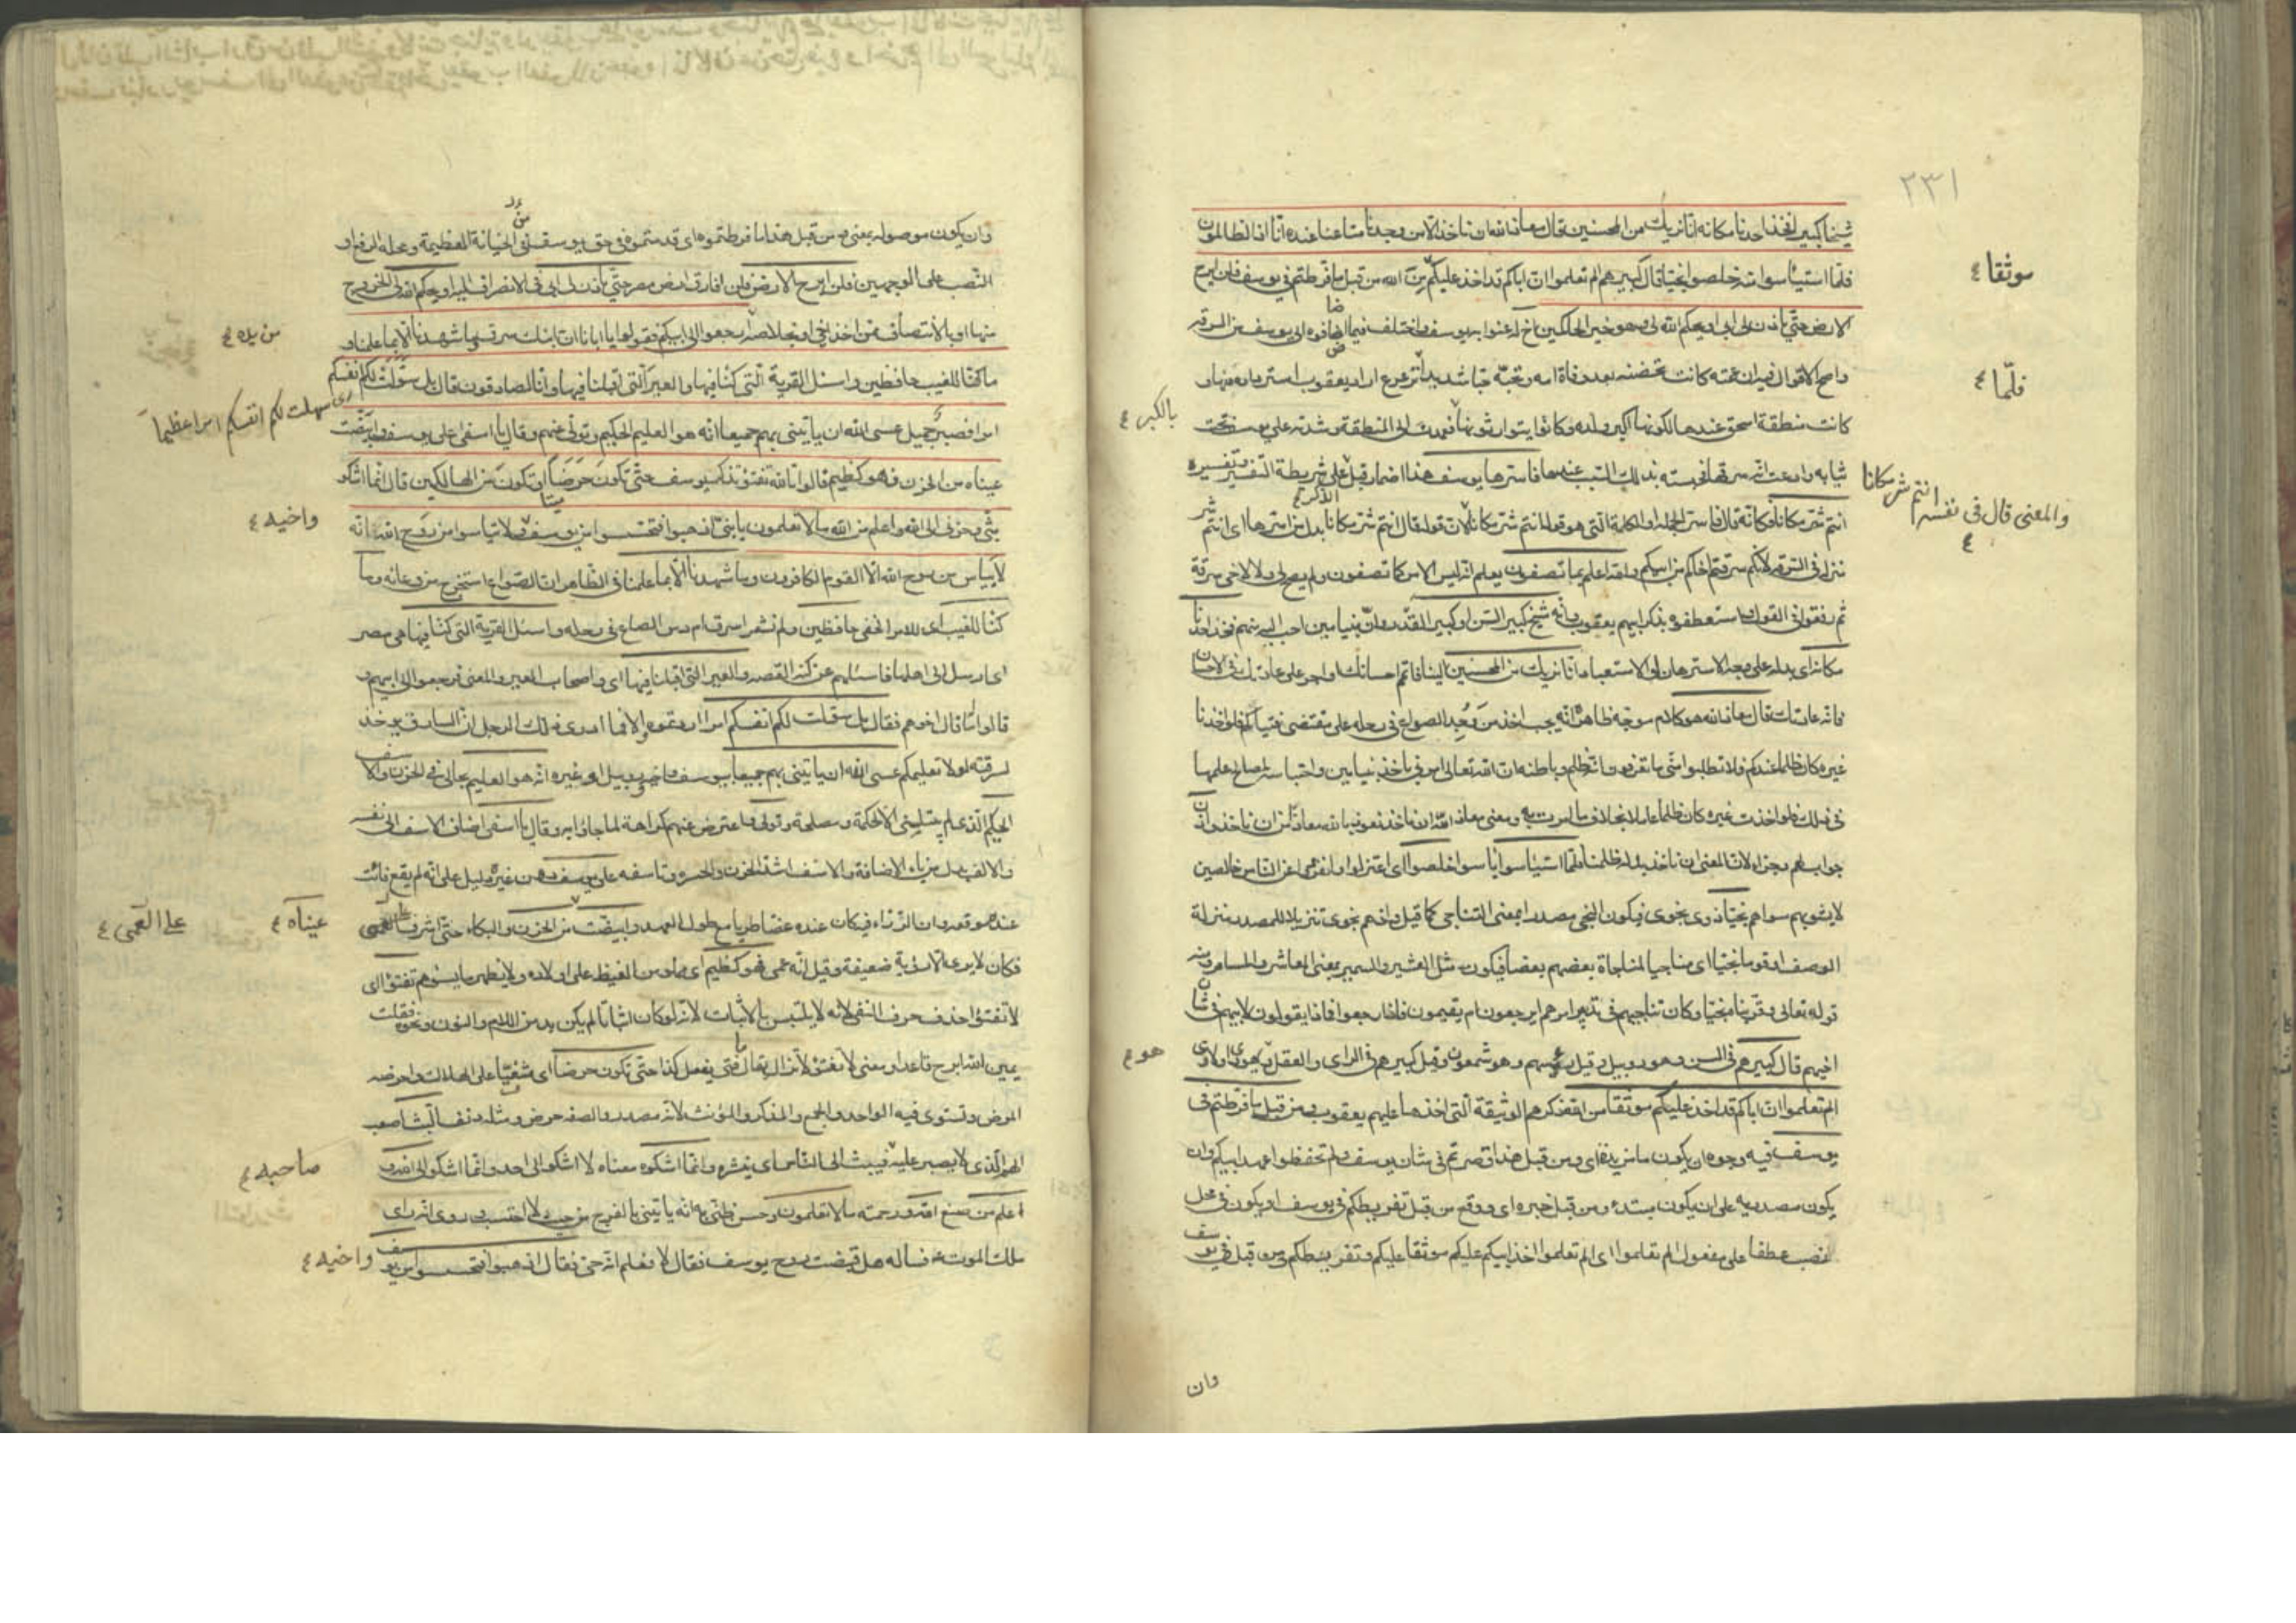 ٢٣١
شيخا كبيرا فخذ احدنا مكانه انا نريك من المحسنين قال معاذ الله ان ناخذ الا من وجدنا متاعنا عنده انا اذا لظالمون
فلما استيأسوا منه خلصوا نجيا قال كبيرهم الم تعلموا ان اباكم قد اخذ عليكم من الله من قبل ما فرطتم في يوسف فلن ابرح
موثقا ع
الارض حتى ياذن لي ابي او يحكم الله لي وهو خير الحاكمين اخ له عنوا به يوسف واختلف فيما اضافوه الى يوسف من السرقه
واصح الاقوال فيه ان عمته كانت تحضنه بعد وفاة امه وتحبه حبا شديدا ترعرع اراد يعقوب استرداده منها و
فلمّا ع
كانت منطقة اسحق عندها لكونها اكبر ولده وكانوا يتوارثونها فعمدت الى المنطقة وشدته على يوسف تحت
بالكبر ع
ثيابه وادعت انه سرقها فحبسته بذلك السبب عندها فاسرها يوسف هذا اضمار قبل على شريطة التفسير وتفسيره
انتم شر مكانا فكانه قال فاسر الجملة او الكلمة التي هو قوله انتم شر مكانا لان قوله قال انتم شر مكانا بدل من اسرها اي انتم شر
والمعنى قال في نفسه انتم شر مكانا ع
منزلة في السرقه لانكم سرقتم اخاكم من ابيكم والله اعلم بما تصفون يعلم انه ليس الامر كما تصفون ولم يصح لي ولا لاخي سرقة
ثم رفقوا في القول واستعطفوه بذكر ابيهم يعقوب وانه شيخ كبير السن او كبير القدر وان بنيامين احب اليه منهم فخذ احدنا
مكانه اي بدله على وجه الاسترهان او الاستعباد انا نريك من المحسنين الينا فاتم احسانك او اجر على عادتك في الاحسان
فانه عادتك قال معاذ الله هو كلام موجه ظاهره انه يجب اخذ من وجد الصواع في رحله على مقتضى فتياكم فلو اخذنا
غيره كان ظلما عندكم فلا تطلبوا مني ما تعرفون انه ظلم وباطنه ان الله تعالى امرني باخذ بنيامين واحتباسه لمصالح علمها
في ذلك فلو اخذت غيره كان ظلما عاملا بخلاف ما امرت به ومعنى معاذ الله ان ناخذ نعوذ بالله معاذا من ان ناخذ واذن
جواب لهم وجزاء لان المعنى ان ناخذ بدله ظلمنا فلما استيأسوا يأسوا خلصوا اي اعتزلوا وانفردوا عن الناس خالصين
لا يشوبهم سواهم نجيا ذوي نجوى فيكون النجي مصدرا بمعنى التناجي كما قيل واذ هم نجوى تنزيلا للمصدر منزلة
الوصف او قوما نجيا اي مناجيا لمناجاة بعضهم بعضا فيكون مثل العشير والسمير بمعنى المعاشر والمسامر ومنه
قوله تعالى وقربناه نجيا وكان تناجيهم في تدبير امرهم ايرجعون ام يقيمون فاذا رجعوا فماذا يقولون لابيهم في شان
اخيهم قال كبيرهم في السن وهو روبيل وقيل رئيسهم وهو شمعون وقيل كبيرهم في الراي والعقل يهودا ولاوى
هو ع
الم تعلموا ان اباكم قد اخذ عليكم موثقا من الله ذكرهم الوثيقة التي اخذها عليهم يعقوب ومن قبل ما فرطتم في
يوسف فيه وجوه ان يكون ما مزيدة اي ومن قبل هذا قصرتم في شان يوسف ولم تحفظوا عهد ابيكم وان
يكون مصدريه على ان يكون مبتدء ومن قبل خبره اي ووقع من قبل تفريطكم في يوسف او يكون في محل
نصب عطفا على مفعول الم تعلموا اي الم تعلموا اخذ ابيكم عليكم موثقا عليكم وتفريطكم من قبل في يوسف
وان
وان يكون موصوله بمعنى ومن قبل هذا ما فرطتموه اي قدمتموه في حق يوسف من الخيانة العظيمة ومحله الرفع او
النصب على الوجهين فلن ابرح الارض فلن افارق ارض مصر حتى ياذن لي ابي في الانصراف اليه او يحكم الله لي بالخروج
منها او بالانتصاف ممن اخذ اخي او بخلاصه ارجعوا الى ابيكم فقولوا يا ابانا ان ابنك سرق وما شهدنا الا بما علمنا و
من يده ع
ما كنا للغيب حافظين واسئل القرية التي كنا فيها والعير التي اقبلنا فيها وانا لصادقون قال بل سولت لكم انفسكم
اي سهلت لكم انفسكم امرا عظيما
امرا فصبر جميل عسى الله ان ياتيني بهم جميعا انه هو العليم الحكيم وتولى عنهم وقال يا اسفى على يوسف وابيضت
عيناه من الحزن فهو كظيم قالوا تالله تفتؤ تذكر يوسف حتى تكون حرضا او تكون من الهالكين قال انما اشكو
بثي وحزني الى الله واعلم من الله ما لا تعلمون يا بني اذهبوا فتحسسوا من يوسف ولا تياسوا من روح الله انه
واخيه ع
لا يياس من روح الله الا القوم الكافرون وما شهدنا الا بما علمنا في الظاهر ان الصواع استخرج من وعائه وما
كنا للغيب اي للامر الخفي حافظين ولم نشعر اسرق ام دس الصاع في رحله واسئل القرية التي كنا فيها هي مصر
اي ارسل الى اهلها فاسئلهم عن كنه القصه والعير التي اقبلنا فيها اي واصحاب العير والمعنى فرجعوا الى ابيهم و
قالوا له ما قال اخوهم فقال بل سولت لكم انفسكم امرا اردتموه والا فما ادرى ذلك الرجل ان السارق يوخذ
لسرقته لولا تعليمكم عسى الله ان ياتيني بهم جميعا بيوسف واخيه وروبيل او غيره انه هو العليم بحالي في الحزن والاسف
الحكيم الذي لم يبتليني الا لحكمة ومصلحة وتولى واعرض عنهم كراهة لما جاؤا به وقال يا اسفى اضاف الاسف الى نفسه
والالف بدل من ياء الاضافة والاسف اشد الحزن والحسره وتاسفه على يوسف دون غيره دليل على انه لم يقع فائت
عنده موقعه وان الرزاء فيه كان عنده غضا طريا مع طول العهد وابيضت من الحزن والبكاء حتى اشرف على العمى
عيناه ع
على العمى ع
فكان لا يرى الا رؤية ضعيفة وقيل انه عمى فهو كظيم اي مملو من الغيظ على اولاده ولا يظهر ما يسوءهم تفتؤ اي
لا تفتؤ احذف حرف النفي لانه لا يلتبس بالاثبات لانه لو كان اثباتا لم يكن بد من اللام والنون ونحوه فقلت
يمين الله ابرح قاعدا ومعنى لا تفتؤ لا تزال يقال ما فتى يفعل كذا حتى تكون حرضا اي مشفيا على الهلاك واحرضه
المرض وتستوي فيه الواحد والجمع والمذكر والمؤنث لانه مصدر والصفه حرض ومثله دنف البث اصعب
الهم الذي لا يصبر عليه فيبثه الى الناس اي ينشره وانما اشكوه معناه لا اشكو الى احد وانما اشكو الى الله و
صاحبه ع
اعلم من صنع الله ورحمته ما لا تعلمون وحسن ظني به انه ياتيني بالفرج من حيث لا احتسب وروي انه راى
ملك الموت ع فساله هل قبضت روح يوسف فقال لا فعلم انه حي فقال اذهبوا فتحسسوا من يوسف
واخيه ع